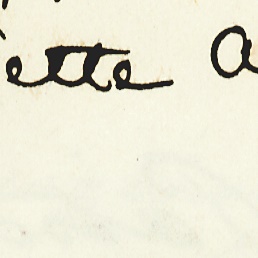 ette a